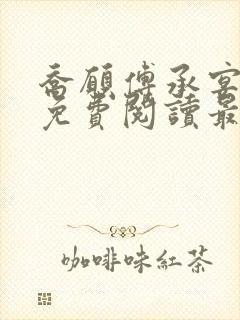 喬願傅承宴
免費閱讀最
咖啡味紅茶